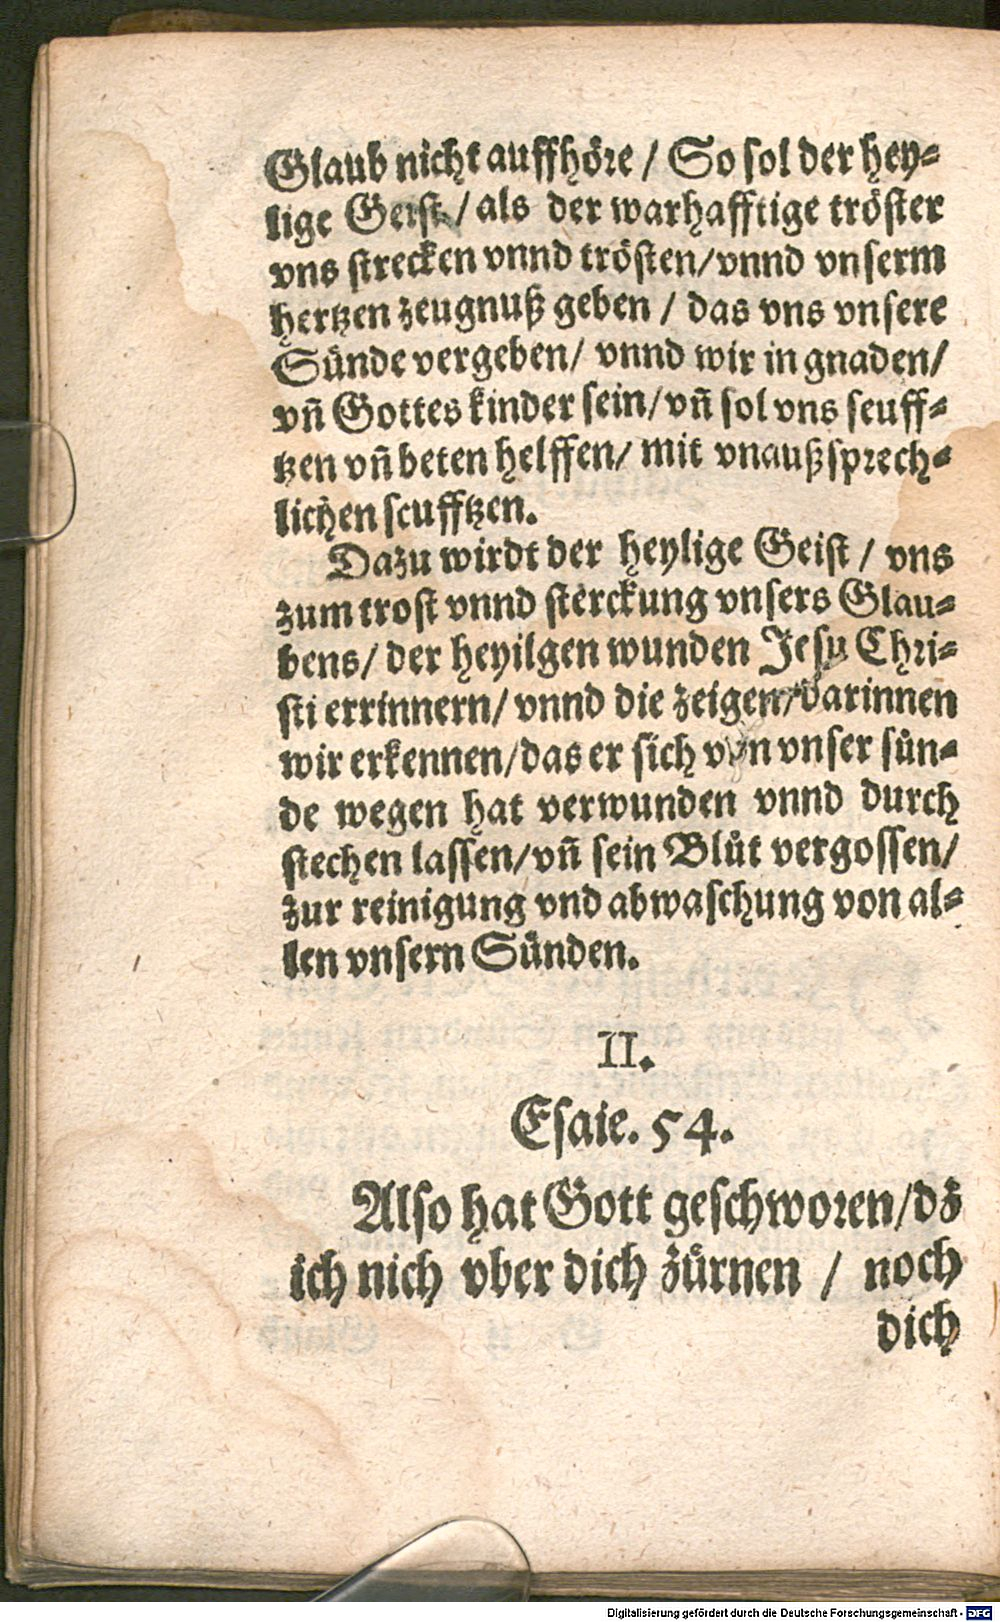 Glaub nicht auffhöre / So sol der hey⸗
lige Geist / als der warhafftige tröster
vns strecken vnnd trösten/vnnd vnserm
hertzen zeugnuß geben / das vns vnsere
Sünde vergeben/ vnnd wir in gnaden/
vñ Gottes kinder sein/vñ sol vns seuff⸗
tzen vñ beten helffen/ mit vnaußsprech⸗
lichen seufftzen.
Dazu wirdt der heylige Geist / vns
zum trost vnnd sterckung vnsers Glau⸗
bens/ der heyilgen wunden Jesu Chri⸗
sti errinnern/ vnnd die zeigen/darinnen
wir erkennen/das er sich von vnser sün⸗
de wegen hat verwunden vnnd durch
stechen lassen/vñ sein Blůt vergossen/
zur reinigung vnd abwaschung von al⸗
len vnsern Sünden.
II.
Esaie. 54.
Also hat Gott geschworen/dz
ich nich vber dich zürnen / noch
dich
Digitalisierung gefördert durch die Deutsche Forschungsgemeinschaft - DFG